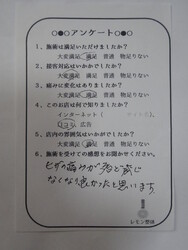 ○●○アンケート○●○
1、施術は満足いただけましたか?
大変満足 満足 普通 物足りない
2、接客対応はいかがでしたか?
大変満足 満足 普通 物足りない
3、痛みに変化はありましたか?
大変満足 満足 普通 物足りない
4、このお店は何で知りましたか?
インターネット(
口コミ 広告
5、店内の雰囲気はいかがでしたか?
大変満足 満足 普通 物足りない
6、施術を受けての感想をお聞かせください。
ヒザの痛みが殆ど感じ
なくなり良かったと思います
レモン整体